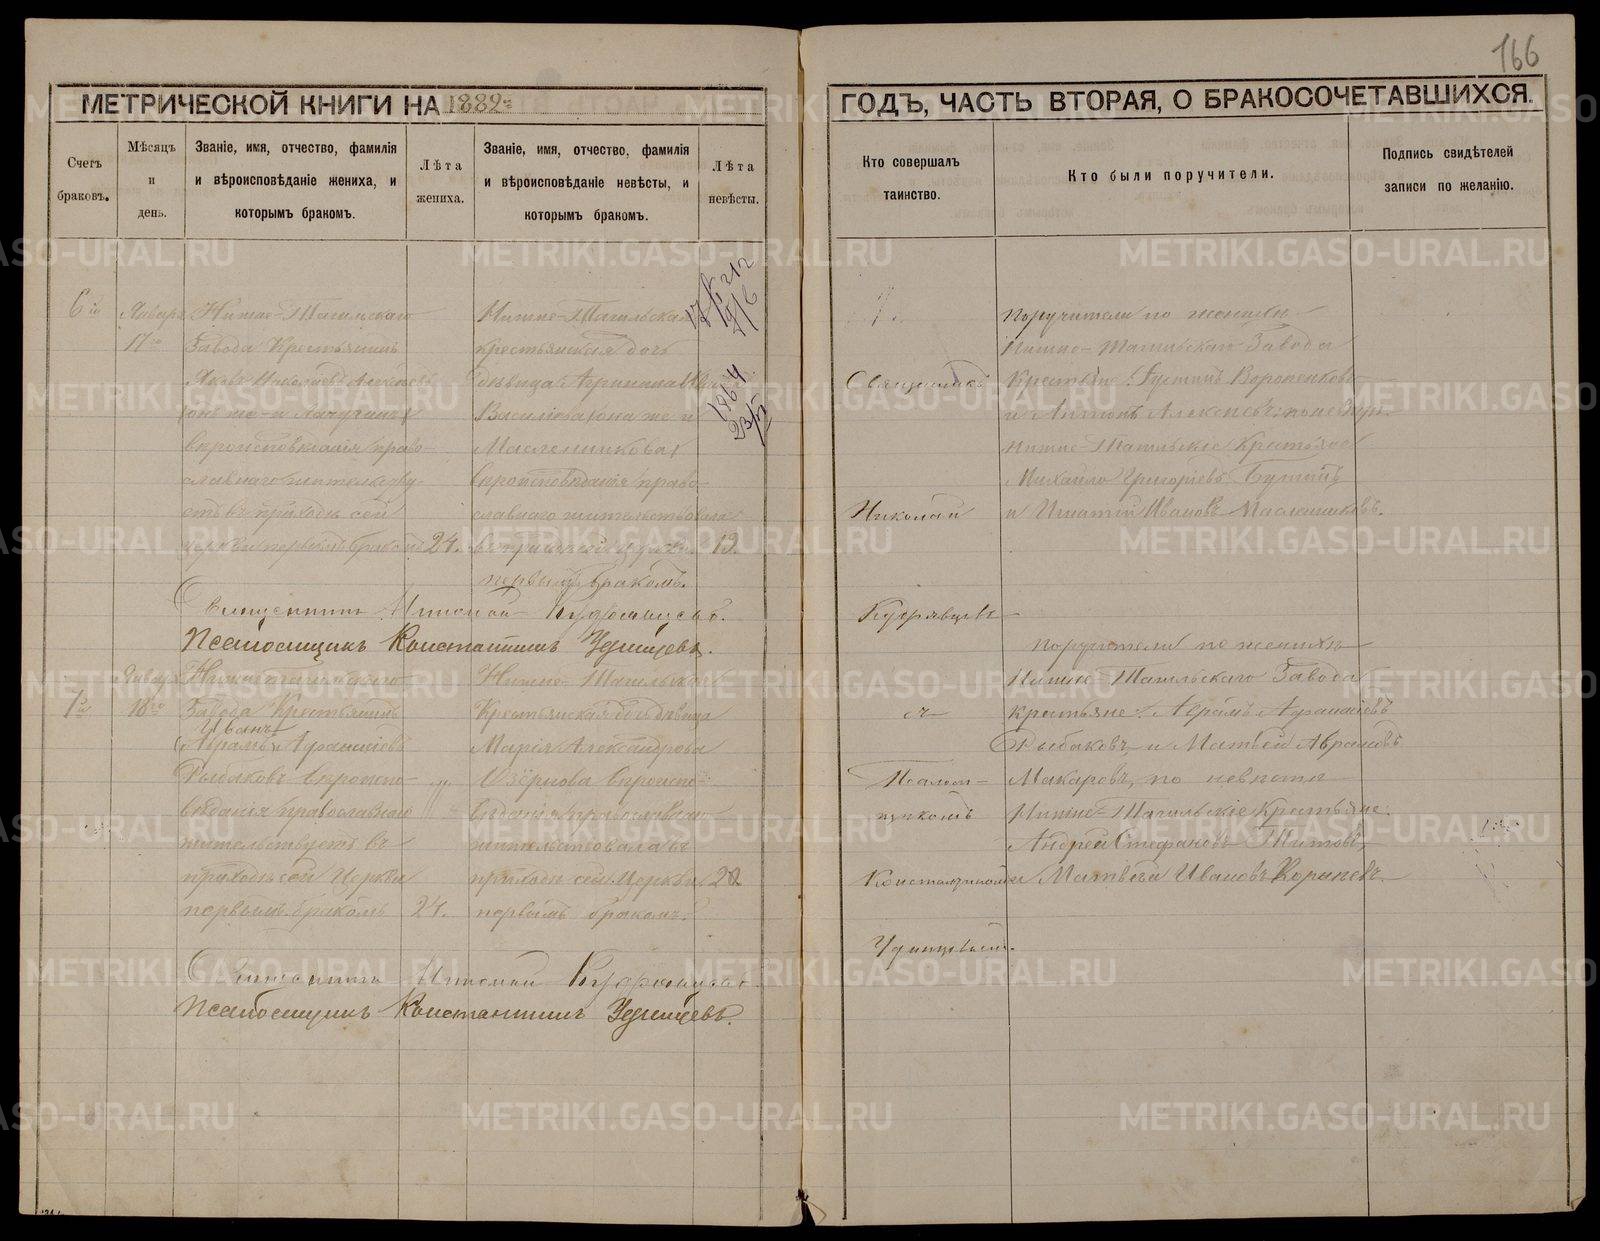 166
МЕТРИЧЕСКОЙ КНИГИ НА 1882й
ГОДЪ, ЧАСТЬ ВТОРАЯ, О БРАКОСОЧЕТАВШИХСЯ.
Счетъ браковъ.
Мѣсяцъ и день.
Званіе, имя, отчество, фамилія
и вѣроисповѣданіе жениха, и
которымъ бракомъ.
Лѣта
жениха.
Званіе, имя, отчество, фамилія
и вѣроисповѣданіе невѣсты, и
которымъ бракомъ.
Лѣта
невѣсты.
Кто совершалъ
таинство.
Кто были поручители.
Подпись свидѣтелей
записи по желанію.
6й
Январь
17го
Нижне-Тагильскаго
Завода Крестьянинъ
вѣроисповѣданія право-
славнаго жительству-
етъ въ приходѣ сей
церкви первымъ бракомъ
24.
Нижне-Тагильская
крестьянская дочь
дѣвица Агрипина
Василіева она же и
Масленникова
вѣроисповѣданія право-
славнаго жительствовала
первымъ бракомъ.
19.
1864
23/VI
Священникъ Николай Кудрявцевъ.
Псаломщикъ Константинъ Удинцевъ.
Священникъ
Николай
Кудрявцевъ
Поручители по женихѣ
Нижне-Тагильскаго Завода
Крестьяне:
и Антонъ Алексѣевъ; по невѣстѣ
Нижне-Тагильскіе Крестьяне
Михаило Григоріевъ
и Игнатій Ивановъ Масленниковъ.
7й
Январь
18го
Нижнетагильскаго
Завода Крестьянинъ
Иванъ
Абрамъ Афанасіевъ
Рыбаковъ вѣроиспо-
вѣданія православнаго
жительствуетъ въ
приходѣ сей Церкви
первымъ бракомъ
24.
Нижне-Тагильская
Крестьянская дочь дѣвица
Марія Александрова
Озёрнова вѣроиспо-
вѣданія православнаго
жительствовала въ
приходѣ сей Церкви
первымъ бракомъ.
22
съ
Псалом-
щикомъ
Константиномъ
Удинцевымъ.
Поручители по женихѣ
Нижне-Тагильскаго Завода
крестьяне: Абрамъ Афанасіевъ
Рыбаковъ и Матвей Абрамовъ
Макаровъ, по невѣстѣ
Нижне-Тагильскіе Крестьяне:
Андрей Стефановъ Титовъ
и Матвей Ивановъ
Священникъ Николай Кудрявцевъ.
Псаломщикъ Константинъ Удинцевъ.
METRIKI.GASO-URAL.RU